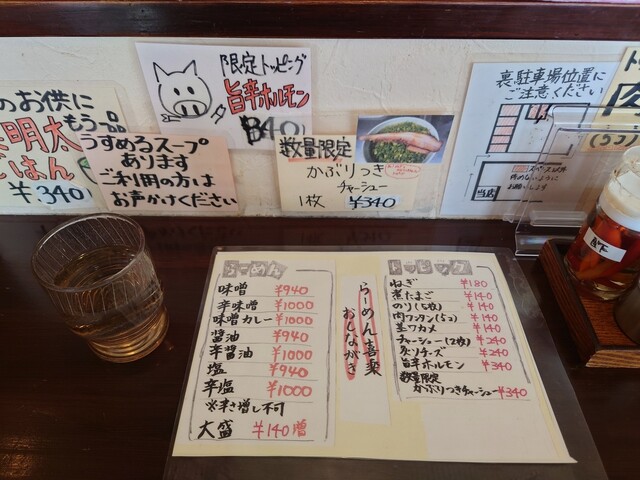 のお供に
もう一品
明太
ごはん
¥.340
うすめるスープ
あります
ご利用の方は
お声がけください
限定トッピング
旨辛ホルモン
¥340
数量限定
かぶりつき
チャーシュー
1枚 ¥340
裏駐車場位置に
ご注意ください
当店
肉
(5コ)
らーめん
味噌 ¥940
辛味噌 ¥1000
味噌カレー ¥1000
醤油 ¥940
辛醤油 ¥1000
塩 ¥940
辛塩 ¥1000
※辛さ増し不可
大盛 ¥140増
らーめん喜楽
おしながき
トッピング
ねぎ ¥180
煮たまご ¥140
のり(5枚) ¥140
肉ワンタン(5コ) ¥140
茎ワカメ ¥140
チャーシュー(2枚) ¥240
炙りチーズ ¥240
旨辛ホルモン ¥340
数量限定
かぶりつきチャーシュー ¥340